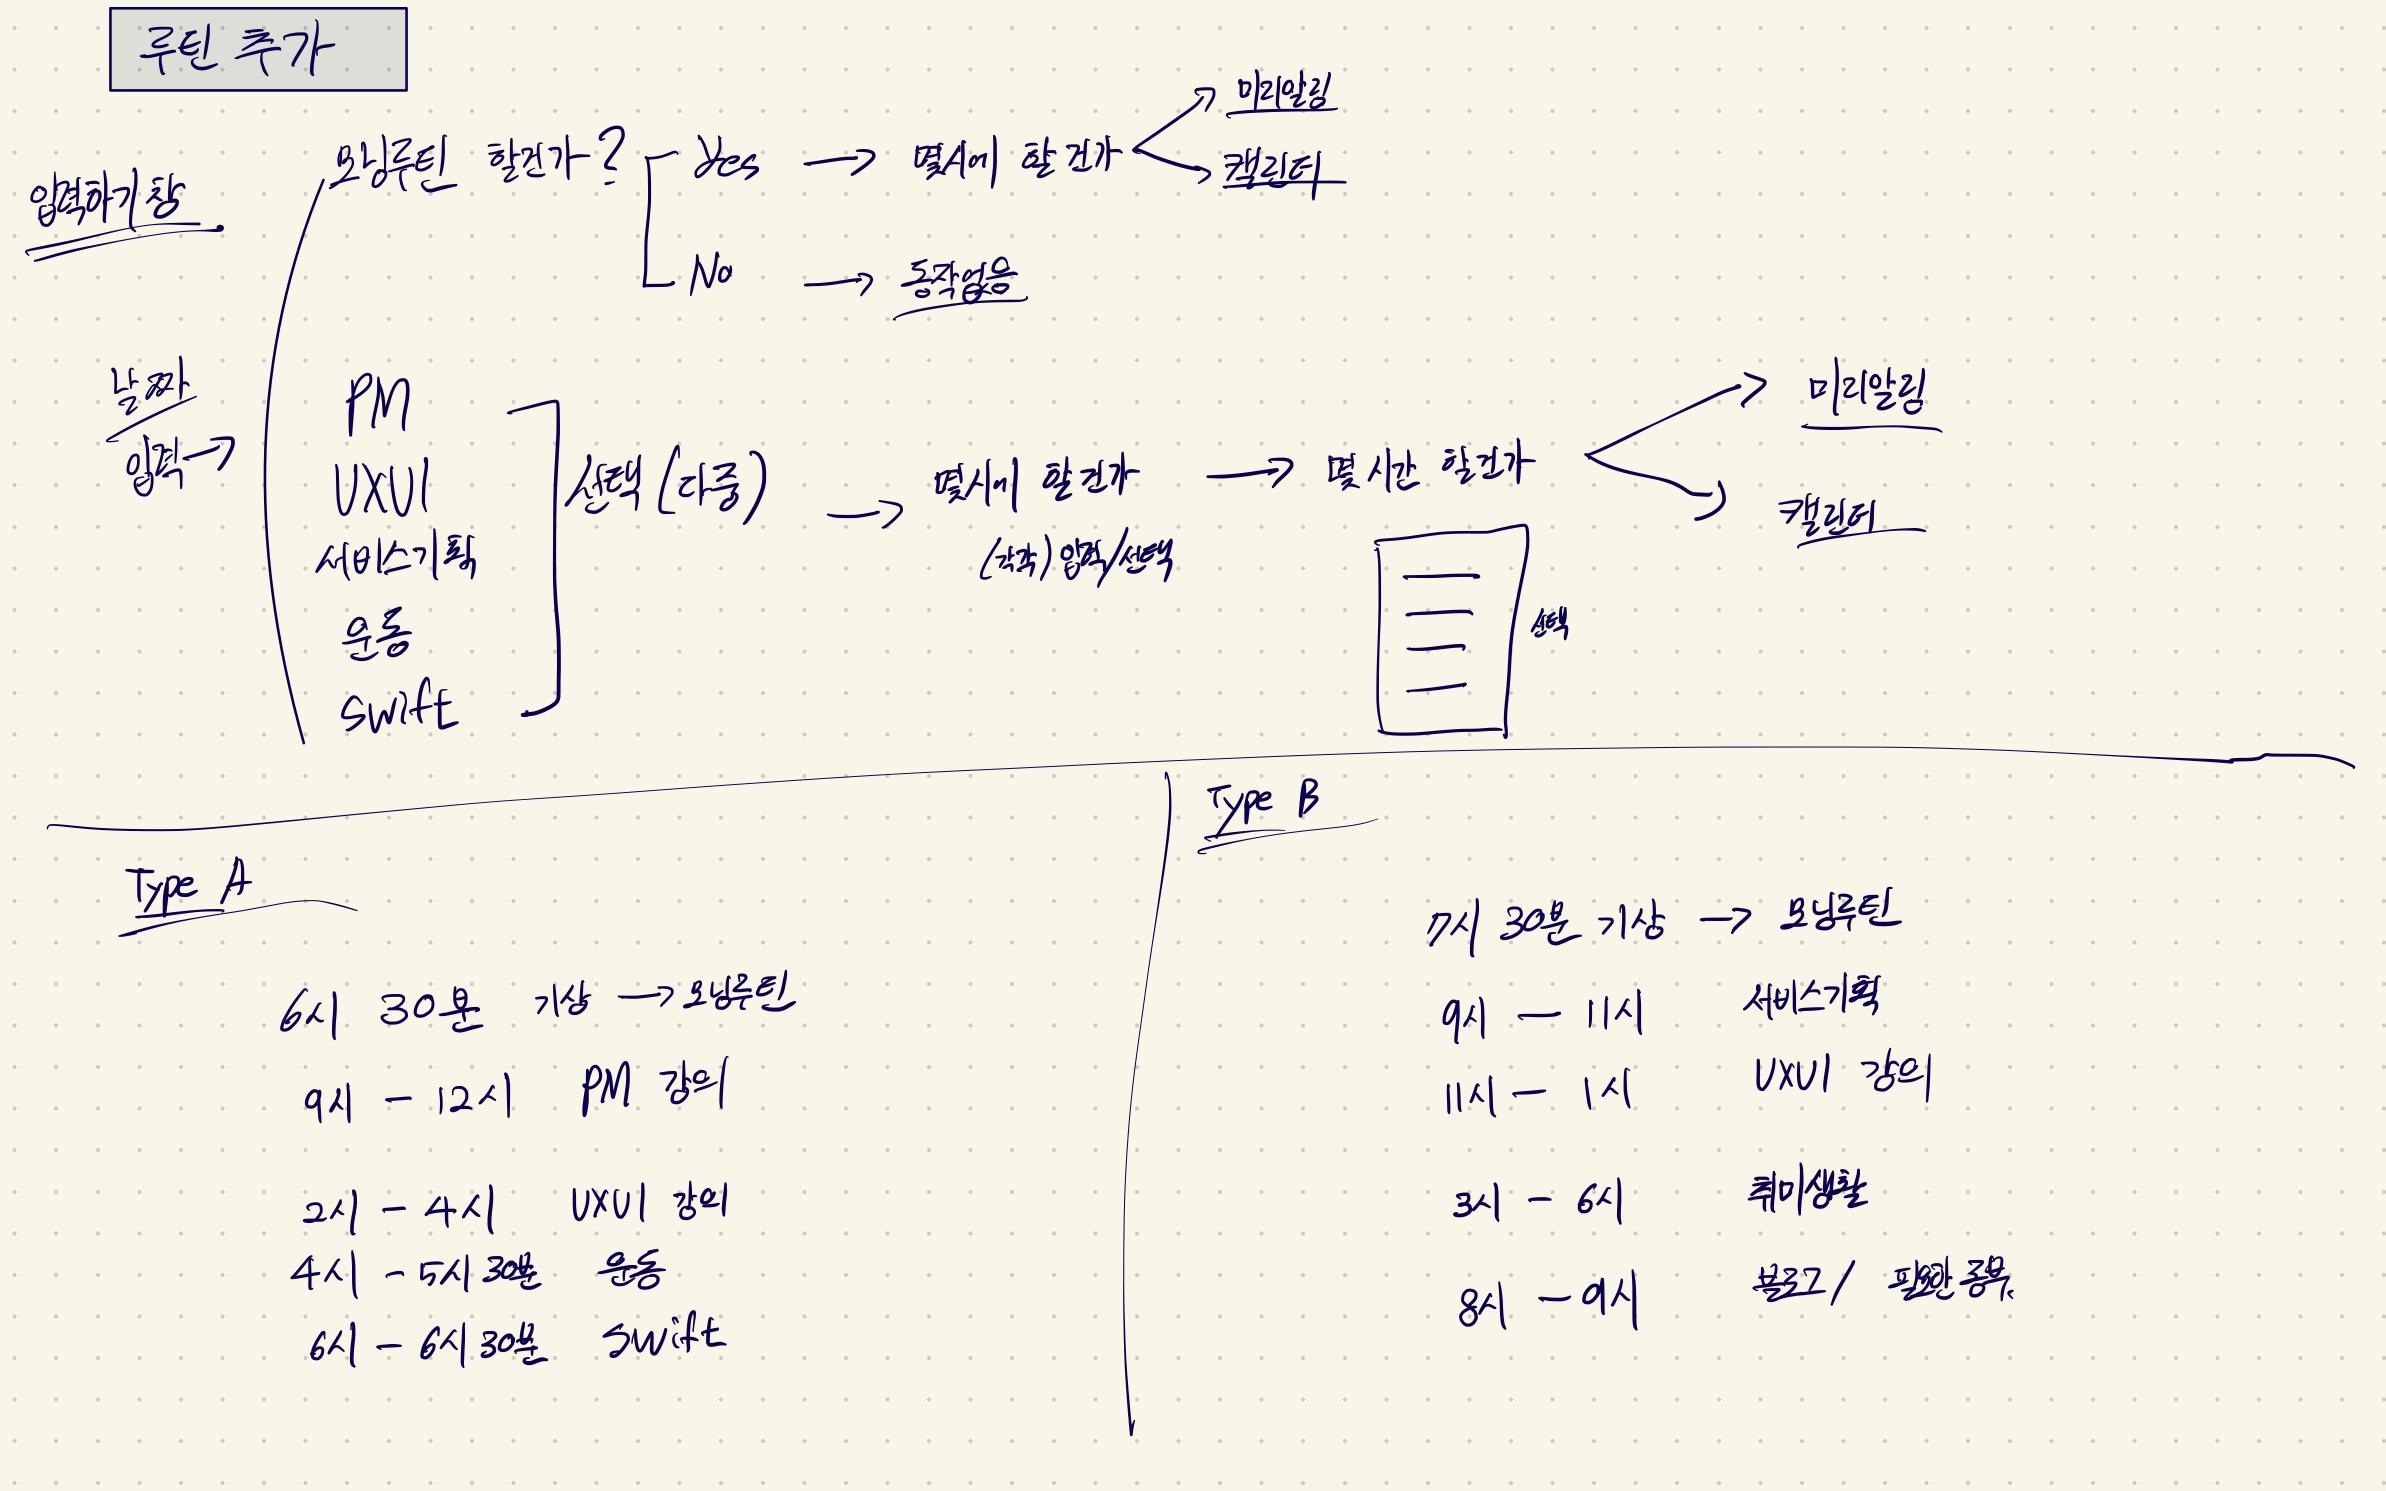 루틴 추가
입력하기 창
모닝루틴 할건가?
Yes → 몇시에 할 건가
미리알림
캘린더
No → 동작없음
날짜
입력→
PM
UXUI
서비스기획
운동
Swift
선택 (다중)
→ 몇시에 할 건가
(각각) 입력/선택
→ 몇 시간 할건가
선택
미리알림
캘린더
Type A
6시 30분 기상 → 모닝루틴
9시 - 12시 PM 강의
2시 - 4시 UXUI 강의
4시 - 5시 30분 운동
6시 - 6시 30분 Swift
Type B
7시 30분 기상 → 모닝루틴
9시 - 11시 서비스기획
11시 - 1시 UXUI 강의
3시 - 6시 취미생활
8시 - 9시 블로그 / 필요한 공부.